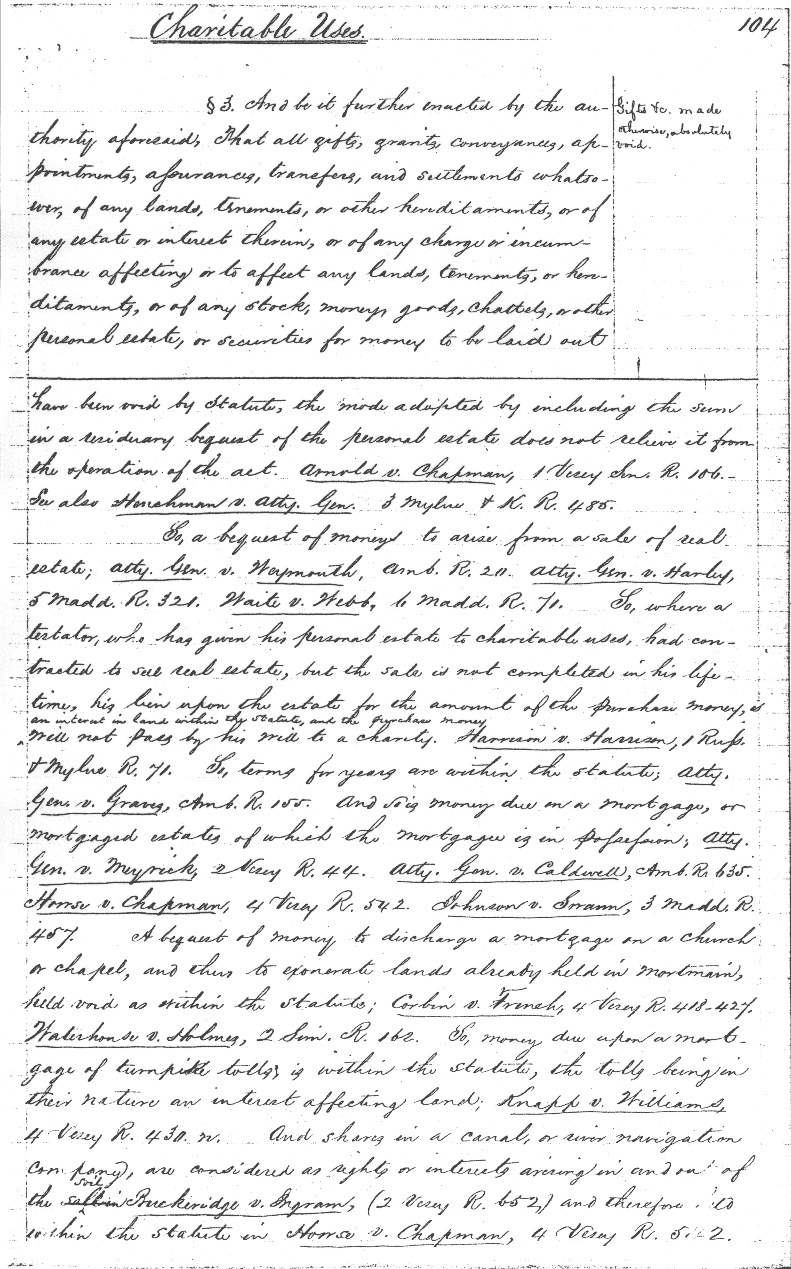 Charitable Uses.
104
§ 3. And be it further enacted by the au-
thority aforesaid, That all gifts, grants, conveyances, ap-
pointments, assurances, transfers, and settlements whatso-
ever, of any lands, tenements, or other hereditaments, or of
any estate or interest therein, or of any charge or incum-
brance affecting or to affect any lands, tenements, or here-
ditaments, or of any stock, money, goods, chattels, or other
personal estate, or securities for money to be laid out
Gifts &c. made
otherwise, absolutely
void.
have been void by Statute, the mode adopted by including the sum
in a residuary bequest of the personal estate does not relieve it from
the operation of the act. Arnold v. Chapman, 1 Vesey Sen. R. 106.-
See also Henchman v. Atty. Gen. 3 Mylne & K. R. 485.
So, a bequest of moneys to arise from a sale of real
estate; Atty. Gen. v. Weymouth, Amb. R. 20. Atty. Gen. v. Harley,
5 Madd. R. 321. Waite v. Webb, 6 Madd. R. 71. So, where a
testator, who has given his personal estate to charitable uses, had con-
tracted to sell real estate, but the sale is not completed in his life-
time, his lien upon the estate for the amount of the purchase money, is
an interest in land within the statute, and the purchase money
will not pass by his will to a charity. Harrison v. Harrison, 1 Russ.
& Mylne R. 71. So, terms for years are within the statute; Atty.
Gen. v. Graves, Amb. R. 155. And so is money due on a mortgage, or
mortgaged estates of which the mortgagee is in possession; Atty.
Gen. v. Meyrick, 2 Vesey R. 44. Atty. Gen. v. Caldwell, Amb. R. 635.
Howse v. Chapman, 4 Vesey R. 542. Johnson v. Swann, 3 Madd. R.
457. A bequest of money to discharge a mortgage on a church
or chapel, and thus to exonerate lands already held in mortmain,
held void as within the statute; Corbin v. French, 4 Vesey R. 418-427.
Waterhouse v. Holmes, 2 Sim. R. 162. So, money due upon a mort-
gage of turnpike tolls, is within the statute, the tolls being in
their nature an interest affecting land; Knapp v. Williams,
4 Vesey R. 430. n. And shares in a canal, or river navigation
company, are considered as rights or interests arising in and out of
soil,
the Buckeridge v. Ingram, (2 Vesey R. 652,) and therefore
within the statute in Howse v. Chapman, 4 Vesey R.